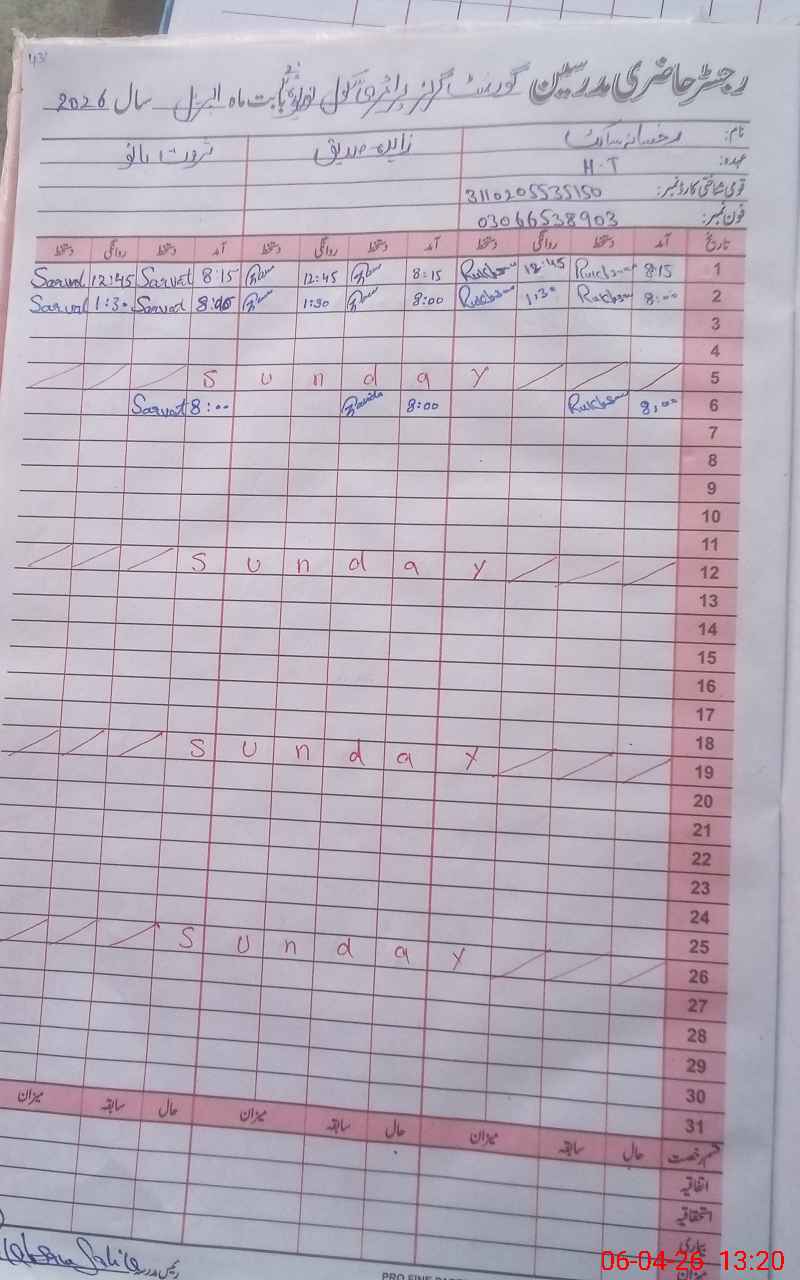 43
رجسٹر حاضری مدرسین گورنمنٹ گرلز پرائمری سکول بابت ماہ اپریل سال 2026
نام: رخسانہ زاہدہ صدیق ثروت بانو
عہدہ: H.T
قومی شناختی کارڈ نمبر: 3110205535150
فون نمبر: 03066538903
تاریخ آمد دستخط روانگی دستخط آمد دستخط روانگی دستخط آمد دستخط روانگی دستخط
1 8:15 Rukhsana 12:45 Rukhsana 8:15 12:45 8:15 Sarvat 12:45 Sarvat
2 8:00 Rukhsana 1:30 Rukhsana 8:00 1:30 8:00 Sarvat 1:30 Sarvat
3
4
5 Sunday
6 8:00 Rukhsana 8:00 Zavida 8:00 Sarvat
7
8
9
10
11
12 Sunday
13
14
15
16
17
18
19 Sunday
20
21
22
23
24
25
26 Sunday
27
28
29
30
31
قسم رخصت حال سابقہ میزان حال سابقہ میزان حال سابقہ میزان
اتفاقیہ
استحقاقیہ
بیماری
میزان
رئیس مدرسہ
PRO FINE
06-04-26 13:20